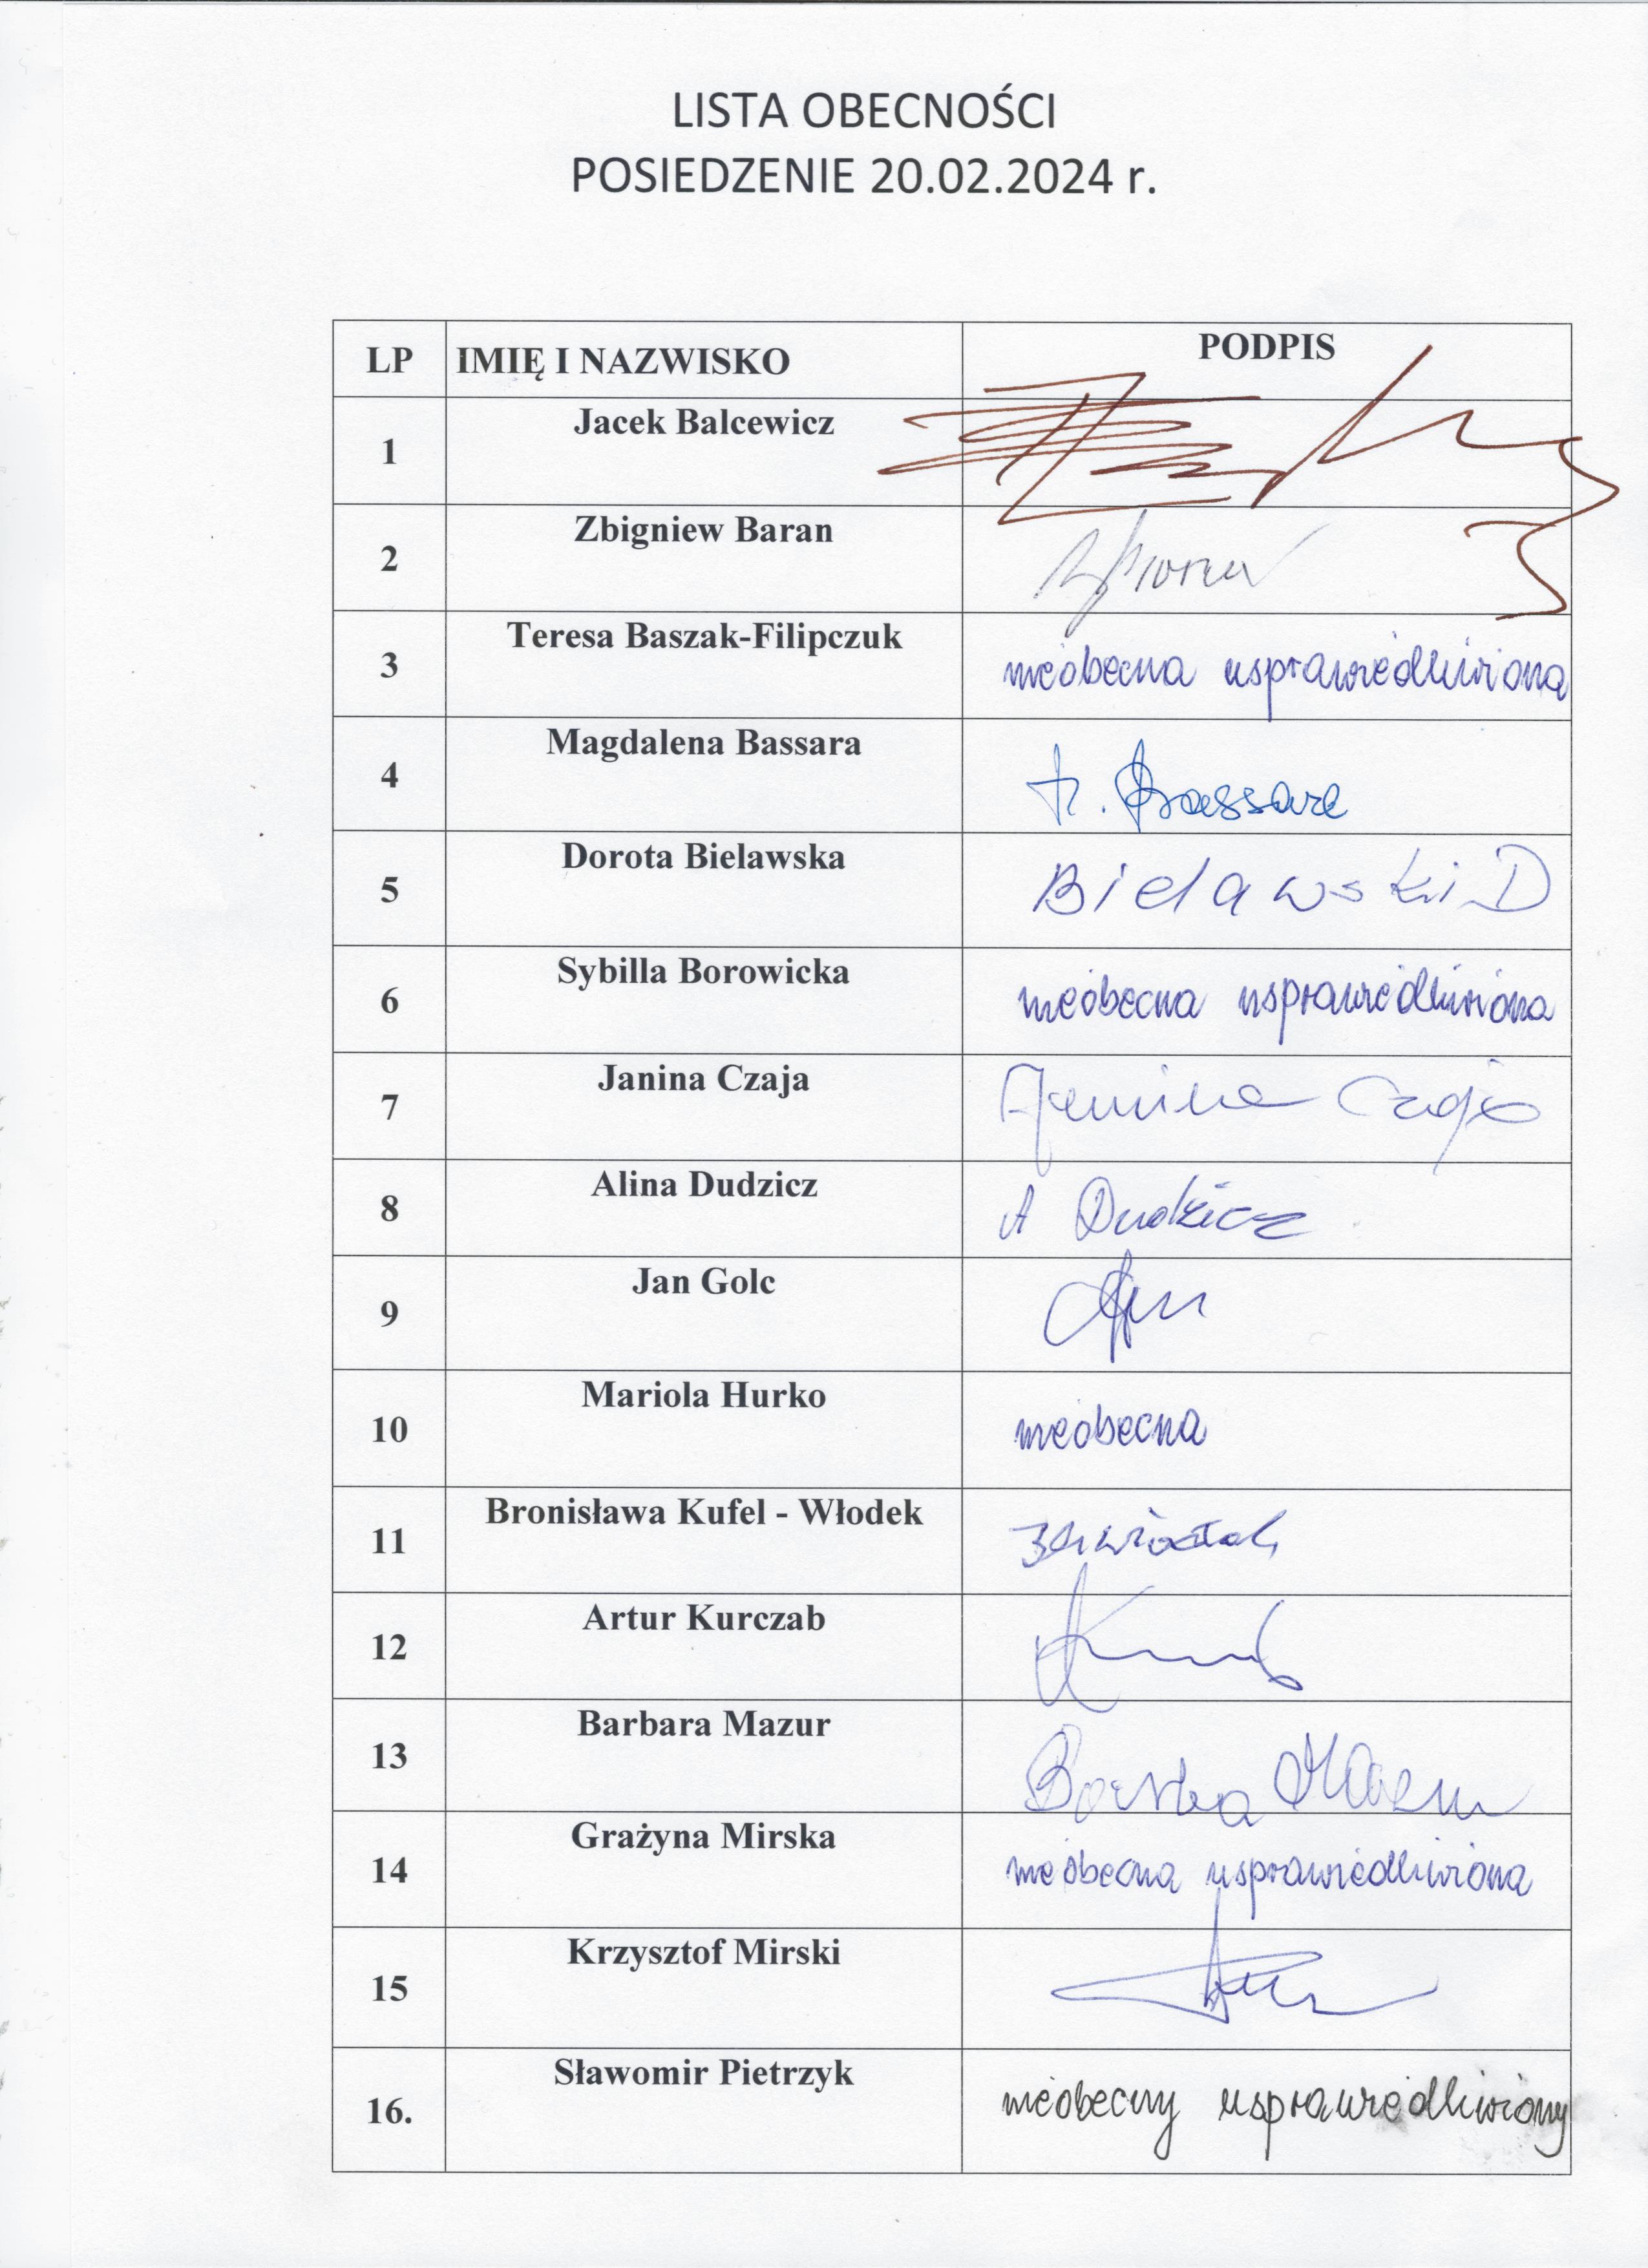 LISTA OBECNOŚCI
POSIEDZENIE 20.02.2024 r.
LP IMIĘ I NAZWISKO PODPIS
1 Jacek Balcewicz
2 Zbigniew Baran
3 Teresa Baszak-Filipczuk nieobecna usprawiedliwiona
4 Magdalena Bassara
5 Dorota Bielawska Bielawski D
6 Sybilla Borowicka nieobecna usprawiedliwiona
7 Janina Czaja Janina Czaja
8 Alina Dudzicz A Dudzicz
9 Jan Golc
10 Mariola Hurko nieobecna
11 Bronisława Kufel - Włodek
12 Artur Kurczab
13 Barbara Mazur
14 Grażyna Mirska nieobecna usprawiedliwiona
15 Krzysztof Mirski
16. Sławomir Pietrzyk nieobecny usprawiedliwiony